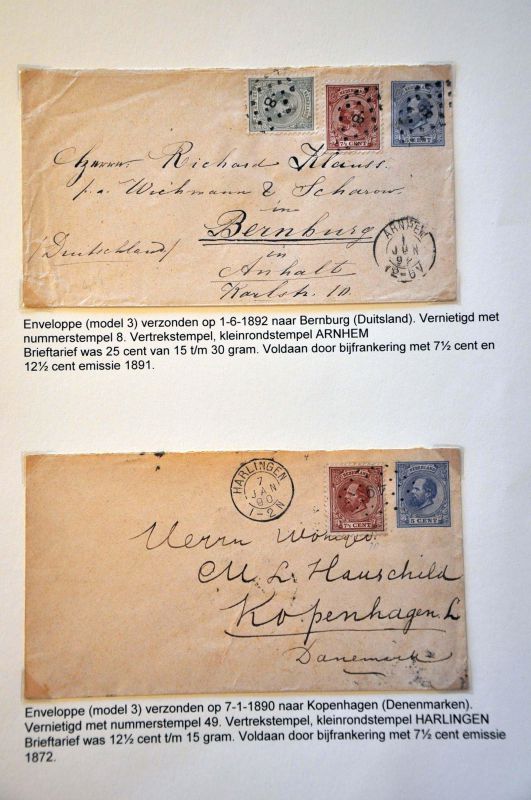 8
8
8
NEDERLAND
NEDERLAND
7½ CENT
5 CENT
Herrn Richard Klauss
p.a. Wichmann & Scharow
in
Bernburg
/Deutschland/
in
Anhalt
Karlstr. 10
ARNHEM
1
JUN
92
12-6V
Enveloppe (model 3) verzonden op 1-6-1892 naar Bernburg (Duitsland). Vernietigd met
nummerstempel 8. Vertrekstempel, kleinrondstempel ARNHEM
Brieftarief was 25 cent van 15 t/m 30 gram. Voldaan door bijfrankering met 7½ cent en
12½ cent emissie 1891.
HARLINGEN
7
JAN
90
1-2N
NEDERLAND
NEDERLAND
49
7½ CENT
5 CENT
Herrn
M L Hauschild
Kopenhagen. L
Danemark
Enveloppe (model 3) verzonden op 7-1-1890 naar Kopenhagen (Denenmarken).
Vernietigd met nummerstempel 49. Vertrekstempel, kleinrondstempel HARLINGEN
Brieftarief was 12½ cent t/m 15 gram. Voldaan door bijfrankering met 7½ cent emissie
1872.